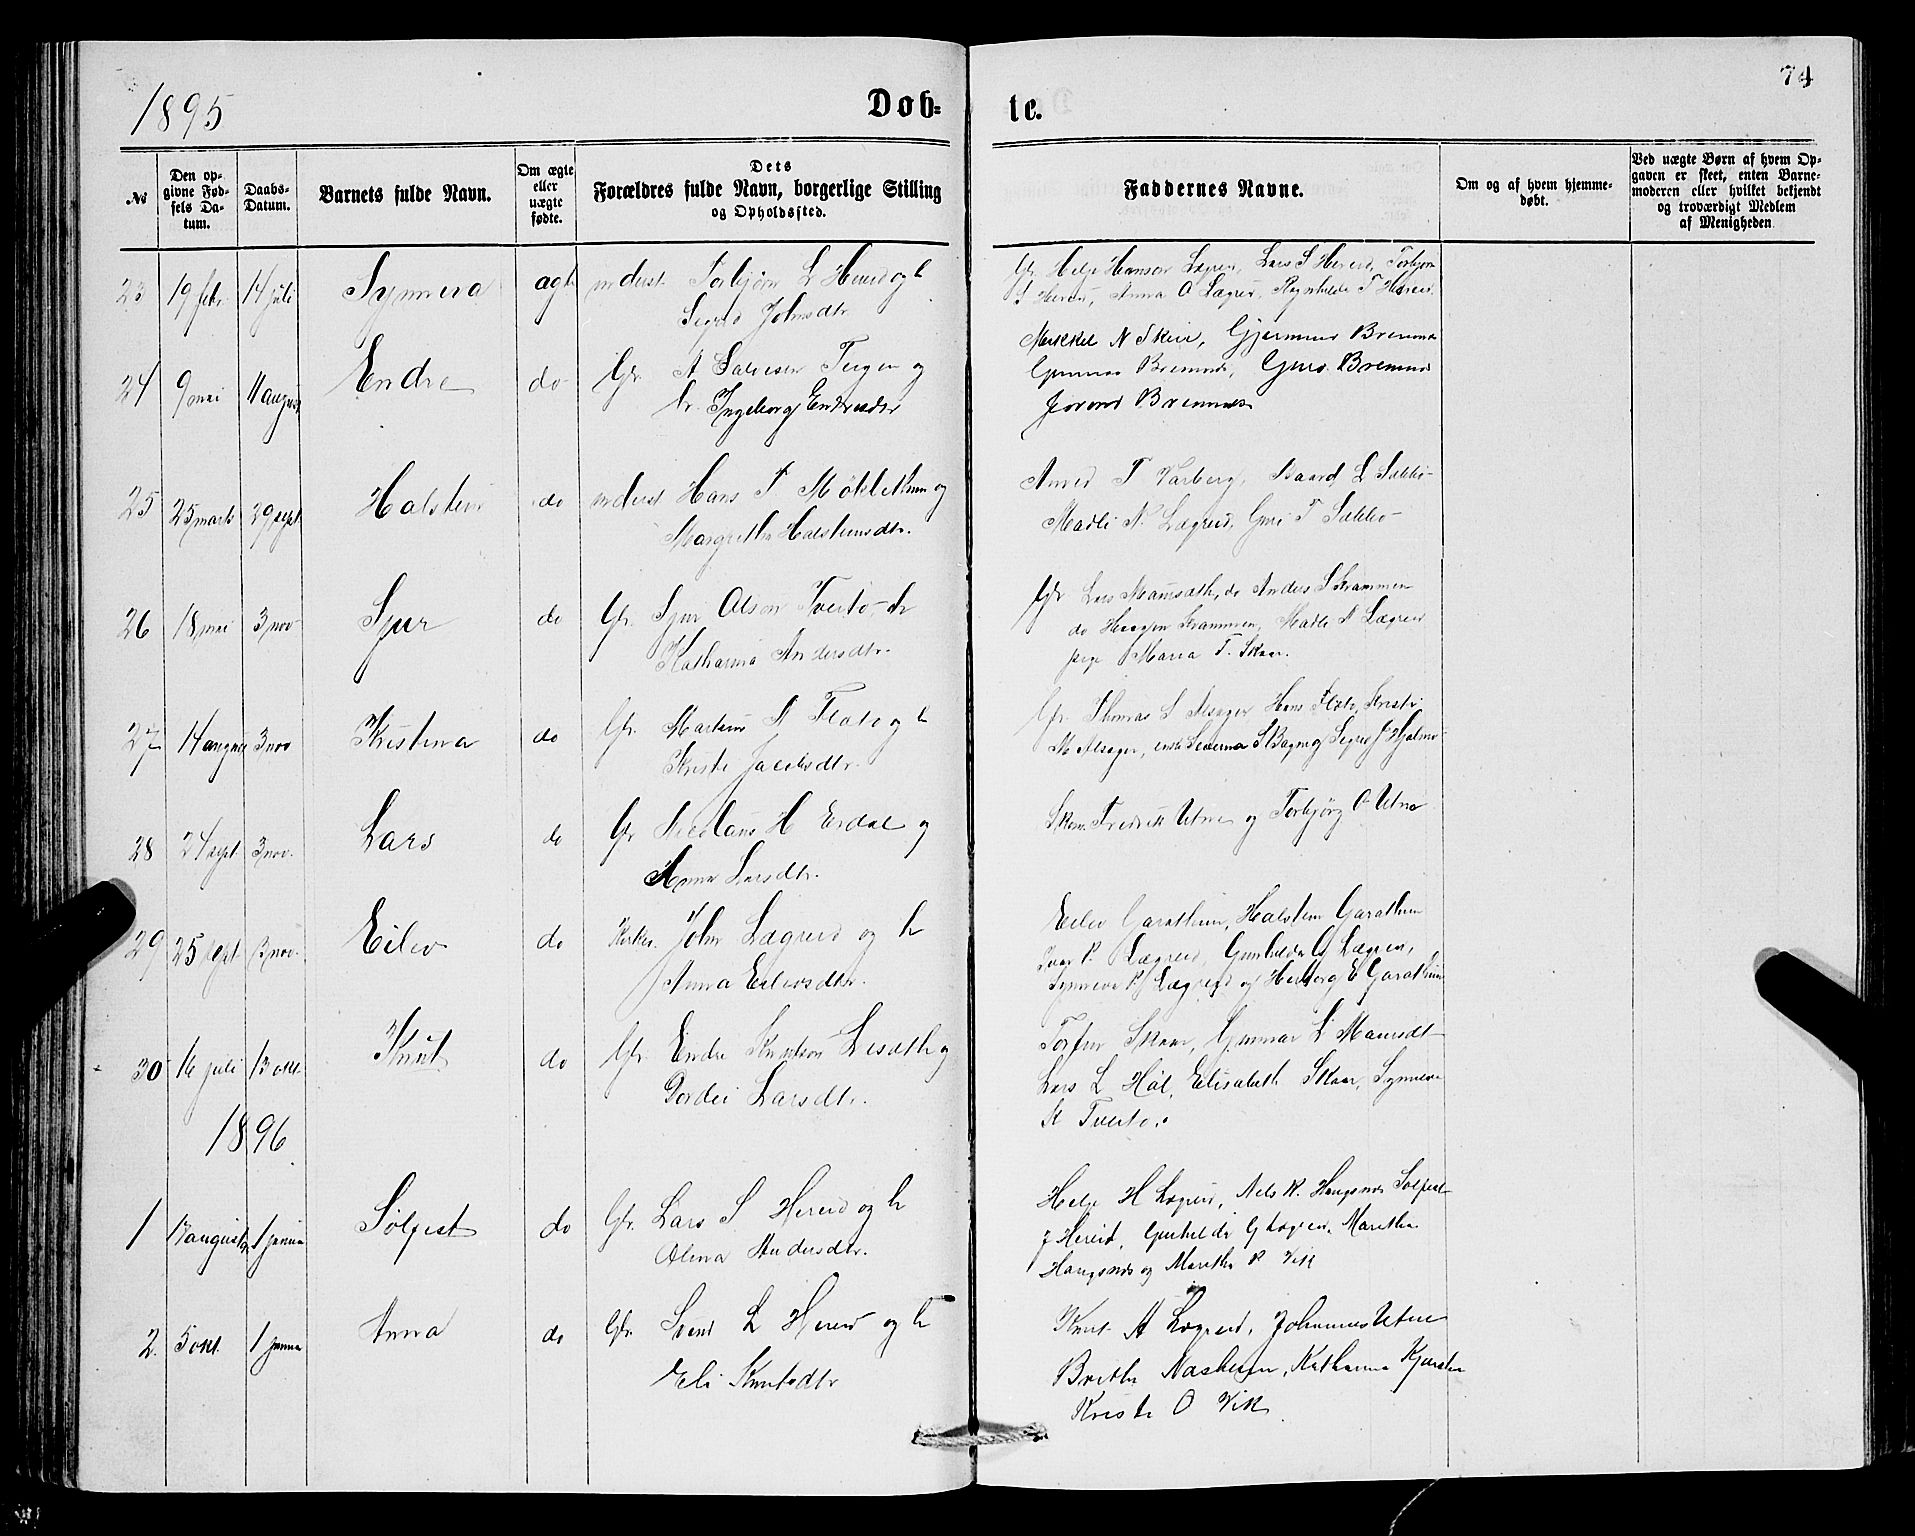 74
1895
Døb- te.
№
Den op-
givne Fød-
sels Da-
tum.
Daabs-
Datum.
Barnets fulde Navn.
Om ægte
eller
uægte
fødte.
Dets
Forældres fulde Navn, borgerlige Stilling
og Opholdssted.
Faddernes Navne.
Om og af hvem hjemme-
døbt.
Ved uægte Børn af hvem Op-
gaven er skeet, enten Barne-
moderen eller hvilket bekjendt
og troværdigt Medlem
af Menigheden.
23 19 febr 14 juli Synneva ægt inderst Torbjørn L Hereid og h
Sigrid Johnsdtr.
Gr. Helje Hanson Lægreid, Lars S Hereid, Torbjørn
S Hereid, Anna O Lægreid, Ragnhilda T Hereid
24 9 mai 11 august Endre do Gr. A Salvesen Teigen og
h. Ingeborg Endresdtr
Mikkel N Skeie, Gjermund Bremnes
Gunnar Bremnes, Guro Bremnes
Jorand Bremnes
25 25 marts 29 sept Halstein do inderst Hans T Møklethun og
Margretha Halsteinsdtr.
T Varberg, Baard L Sæbbø
Madli N. Lægreid, Guri T Sæbbø
26 18 mai 3 nov Sjur do Gr. Sjur Olson Tveito h
Katharina Andersdtr.
Gr Lars Maursæth, do Anders S Krammen
do Haagen Krammen, Madli A Lægreid
pige Maria T. Skaar.
27 14 august 3 nov Kristina do Gr. Martinus A Floto og h
Kristi Jacobsdtr.
Gr. Thomas S Alsager Hans Floto, Kristi
M Alsager, enke Severina S Bagn og Sigrid J Hjelmo
28 24 sept 3 nov. Lars do Gr Nicolaus H Erdal og
Anna Larsdtr.
Fredrik Utne og Torbjørg O Utne
29 25 sept 3 nov. Eilev do Kirkes. John Lægreid og h
Anna Eilevsdtr.
Eilev Garathun, Halstein Garathun
Ivar P. Lægreid, Gunhilda G Lægreid,
Synneva P Lægreid og Herborg E Garathun
30 16 juli 13 okt. Knut do Gr. Endre Knutson Lisæth og
Gordei Larsdtr.
Torfin Skaar, Gunnar L Maursæt
Lars L Høl, Elisabeth Skaar, Synneva
K Tveito.
1896
1 17 august 1 janua Sølfest do Gr. Lars S Hereid og h
Olina Andersdtr.
Helje H Lægreid, Nels K. Haugsnes Sølfest
J Hereid, Gunhilda G Lægreid, Maritha
Haugsnes og Maritha P Vik
2. 5 okt. 1 janua Anna do Gr. Svend L Hereid og h
Eli Knutsdtr
Knut A Lægreid, Johannes Utne
Britha Nashe͏im, Katharina Kjærland
Kristi O Vik